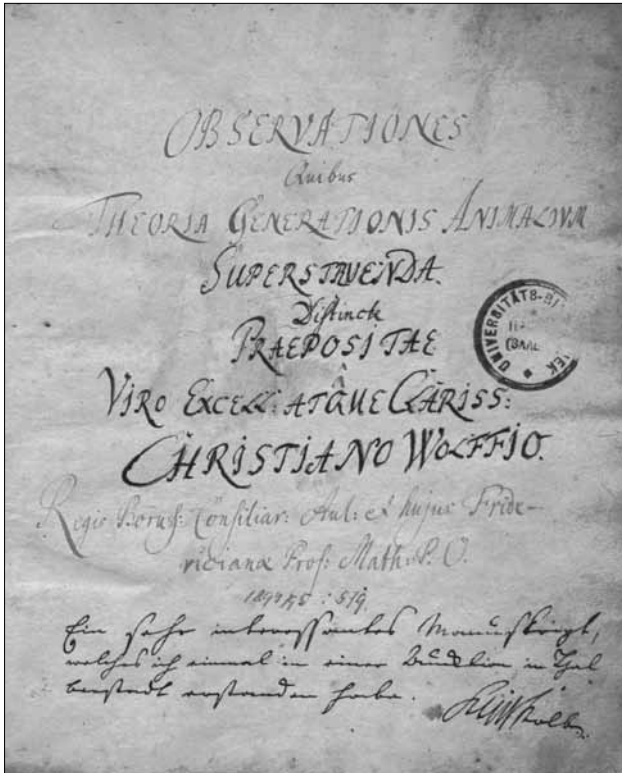 OBSERVATIONES
Quibus
THEORIA GENERATIONIS ANIMALIVM
SUPERSTRUENDA.
Distincte
PRAEPOSITAE
A
VIRO EXCELL: ATQUE CLARISS:
CHRISTIANO WOLFFIO.
Regio Boruss: Consiliar: Aul: et hujus Fride-
ricianæ Prof: Math: P. O.
UNIVERSITÄTS-BI EK
Ein sehr interessantes Manuskript,
welches ich einmal in einer Auction in Hal
erstanden habe.